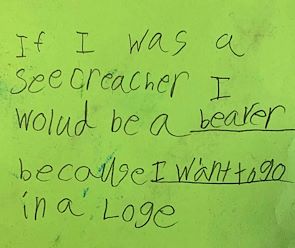 If I was a
see creacher I
wolud be a bearer
because I want to go
in a Loge